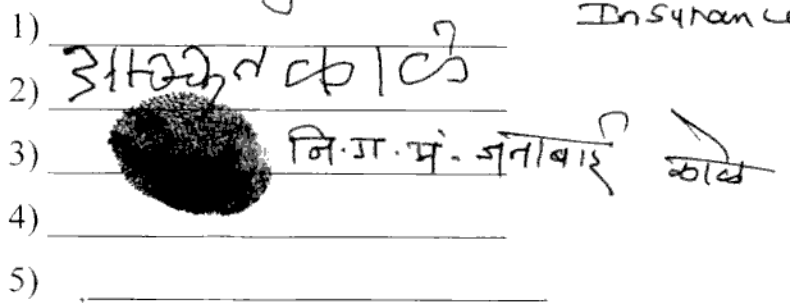 Insurance
1)
2) काळे
3) नि.ग.मं. जनाबाई काळे
4)
5)